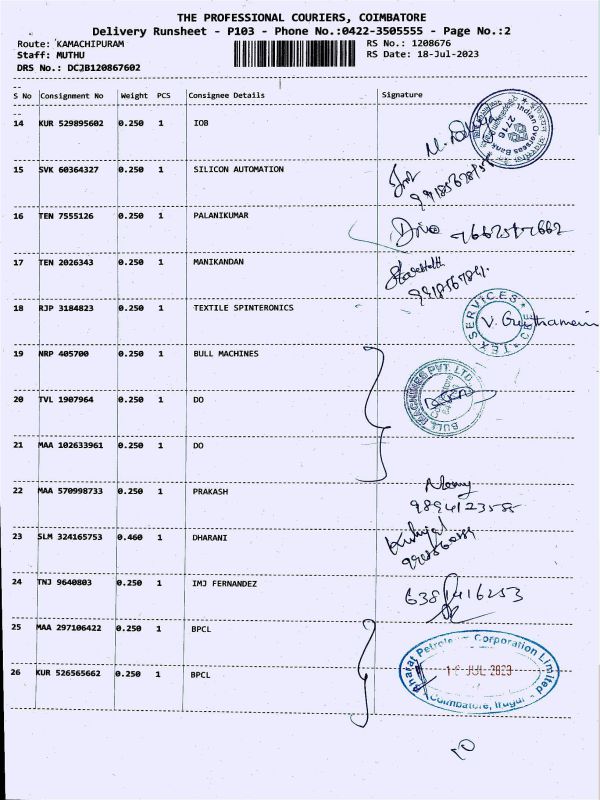 THE PROFESSIONAL COURIERS, COIMBATORE
Delivery Runsheet - P103 - Phone No.:0422-3505555 - Page No.:2
Route: KAMACHIPURAM RS No.: 1208676
Staff: MUTHU RS Date: 18-Jul-2023
DRS No.: DCJB120867602
S No Consignment No Weight PCS Consignee Details Signature
14 KUR 529895602 0.250 1 IOB
Indian Overseas Bank
2716
15 SVK 60364327 0.250 1 SILICON AUTOMATION
16 TEN 7555126 0.250 1 PALANIKUMAR
17 TEN 2026343 0.250 1 MANIKANDAN
18 RJP 3184823 0.250 1 TEXTILE SPINTERONICS
19 NRP 405700 0.250 1 BULL MACHINES
BULL MACHINES PVT. LTD.
20 TVL 1907964 0.250 1 DO
21 MAA 102633961 0.250 1 DO
22 MAA 570998733 0.250 1 PRAKASH
23 SLM 324165753 0.460 1 DHARANI
24 TNJ 9640803 0.250 1 IMJ FERNANDEZ
25 MAA 297106422 0.250 1 BPCL
Corporation Limited
JUL 2023
26 KUR 526565662 0.250 1 BPCL